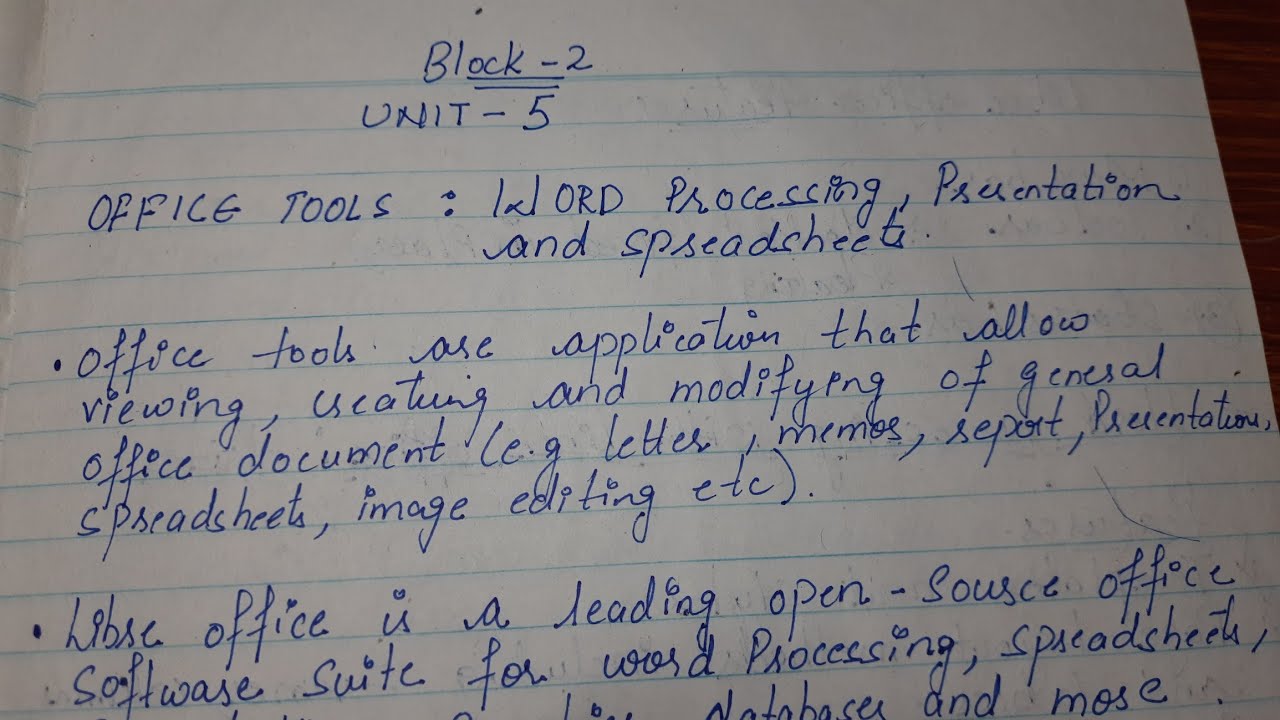 Block - 2
UNIT - 5
OFFICE TOOLS : WORD Processing, Presentation
and spreadsheets.
• office tools are application that allow
viewing, creating and modifying of general
office document (e.g letter, memos, report, Presentation,
spreadsheets, image editing etc).
• Libre office is a leading open - source office
software suite for word Processing, spreadsheets,
databases and more.